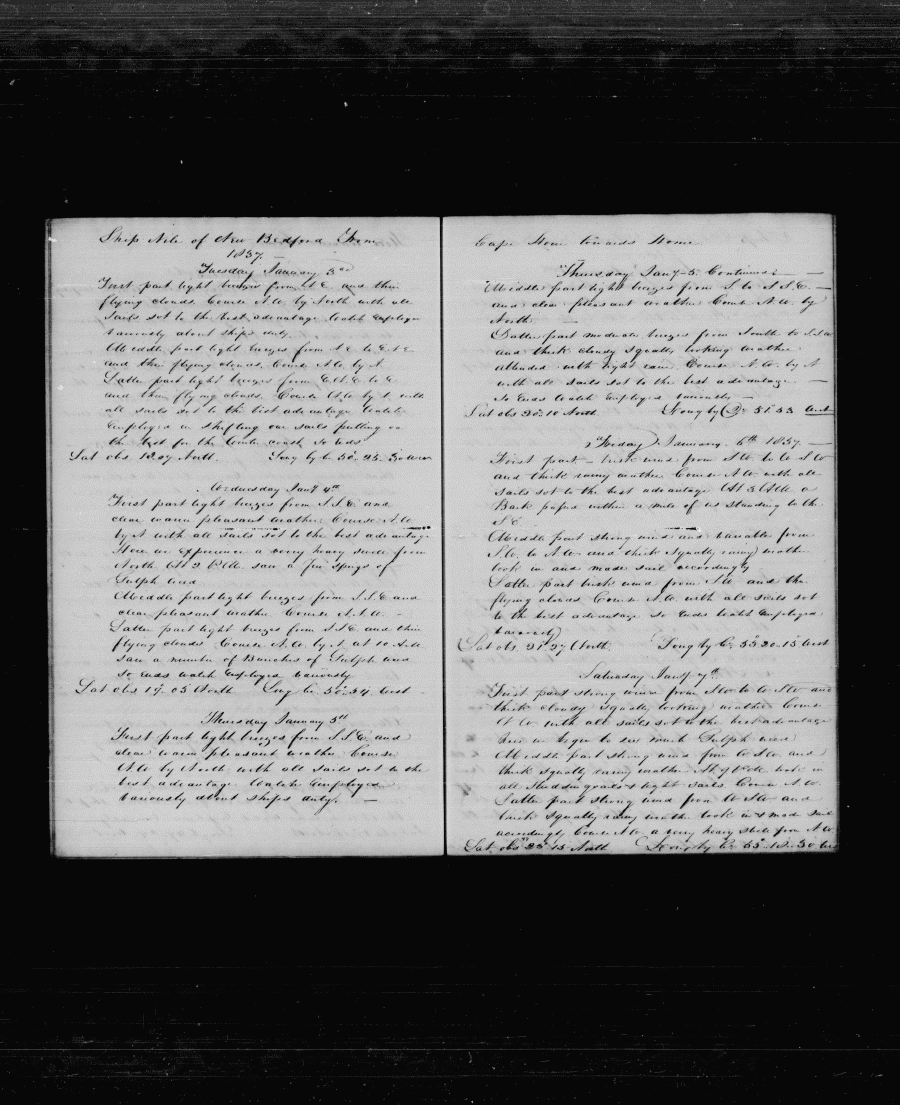 Ship Nile of New Bedford From
1837. —
Tuesday January 3rd
First part light breezes from N.E. and thin
flying clouds. Course N.W. by North with all
Sails set to the best advantage Watch Employed
variously about ships duty.
Middle part light breezes from N.E. to E.N.E
and thin flying clouds. Course N.W. by N.
Latter part light breezes from E.N.E. to E
and thin flying clouds. Course N.W. by N. with
all sails set to the best advantage Watch
Employed in shifting our sails putting on
the best for the coast. So Ends
Lat obs 15.07 North. Long by
Wednesday Jany 4th
First part light breezes from S.S.E. and
clear warm pleasant weather. Course N.W.
by N. with all sails set to the best advantage
Here we Experience a very heavy swell from
North At 2 P.M. saw a few sprigs of
Gulph weed
Middle part light breezes from S.S.E. and
clear pleasant weather Course N.N.W. —
Latter part light breezes from S.S.E. and thin
flying clouds Course N.W. by N. at 10 A.M.
saw a number of Bunches of Gulph weed
So Ends watch Employed variously
Lat obs 17.05 North Long West
Thursday January 5th
First part light breezes from S.S.E. and
clear warm pleasant weather Course
N.W. by North with all sails set to the
best advantage Watch Employed
variously about ships duty. —
Cape Horn towards Home
Thursday Jany 5. Continued —
Middle part light breezes from S. to S.S.E. —
and clear pleasant weather Course N.W. by
North. —
Latter part moderate breezes from South to S.S.W
and thick cloudy squally looking weather
attended with light rain. Course N.W. by N
with all sails set to the best advantage —
So Ends Watch Employed variously —
Lat obs 20.10 North Long by 51.53 West
Friday January 6th 1837. —
First part brisk wind from SW to W.S.W
and thick rainy weather Course N.W. with all
Sails set to the best advantage At 5 A.M. a
Bark passed within a mile of us standing to the
S.E.
Middle part strong winds and variable from
S.W. to N.W. and thick squally rainy weather
took in and made sail accordingly
Latter part brisk wind from S.W. and thin
flying clouds Course N.W. with all sails set
to the best advantage So Ends Watch Employed
variously
Lat obs 21.27 North. Long by C. 53.20.15 West
Saturday Jany 7th
First part strong wind from SW to W.S.W and
thick cloudy squally looking weather Course
N.W. with all sails set to the best advantage
here we begin to see much Gulph weed
Middle part strong wind from W.S.W and
thick squally rainy weather At 9 P.M. took in
all Studdingsails & light sails Course N.W.
Latter part strong wind from W.S.W and
thick squally rainy weather took in & made Sail
accordingly Course N.W. a very heavy swell from N.W.
Lat obs 23.15 North Long by C. 55.12.30 West